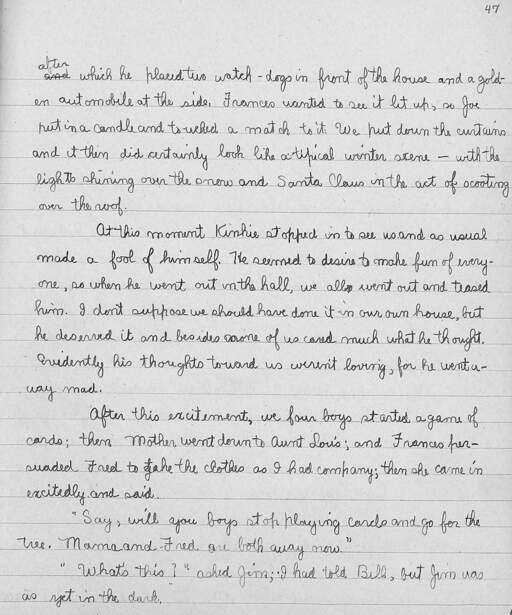 47
after
and which he placed two watch-dogs in front of the house and a gold-
en automobile at the side. Frances wanted to see it lit up, so Joe
put in a candle and touched a match to it. We put down the curtains
and it then did certainly look like a typical winter scene — with the
lights shining over the snow and Santa Claus in the act of scooting
over the roof.
At this moment Kinkie stopped in to see us and as usual
made a fool of himself. He seemed to desire to make fun of every-
one, so when he went out in the hall, we all went out and teased
him. I don't suppose we should have done it in our own house, but
he deserved it and besides none of us cared much what he thought.
Evidently his thoughts toward us weren't loving, for he went a-
way mad.
After this excitement, we four boys started a game of
cards; then Mother went down to Aunt Lou's; and Frances per-
suaded Fred to take the clothes as I had company; then she came in
excitedly and said.
"Say, will you boys stop playing cards and go for the
tree. Mama and Fred are both away now."
"What's this?" asked Jim; I had told Bill, but Jim was
as yet in the dark.